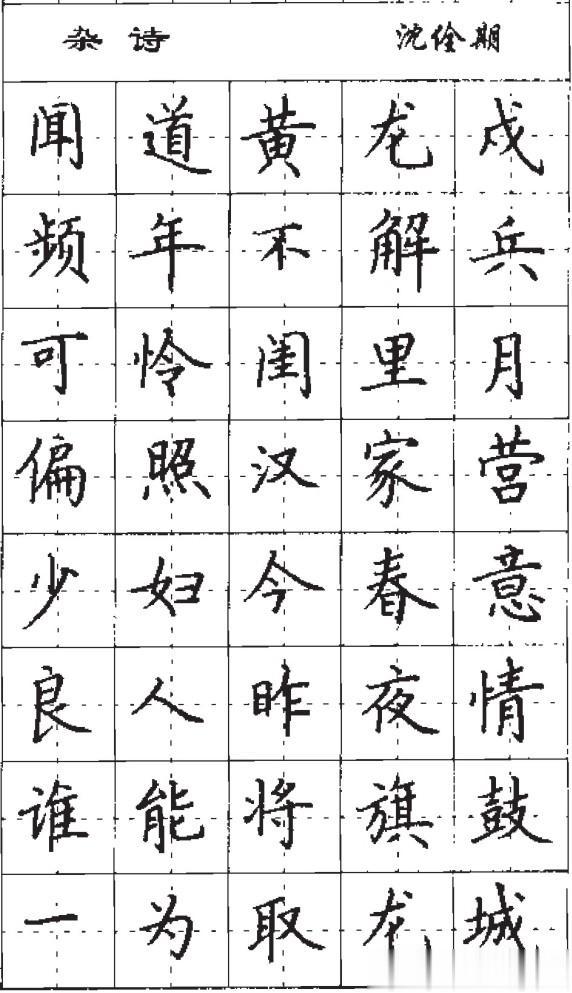 杂诗 沈佺期
闻道黄龙戍
频年不解兵
可怜闺里月
偏照汉家营
少妇今春意
良人昨夜情
谁能将旗鼓
一为取龙城